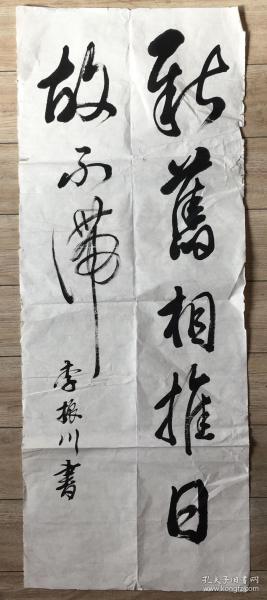 新舊相推日
故不滯
李振川書
孔夫子旧书网
www.kongfz.com